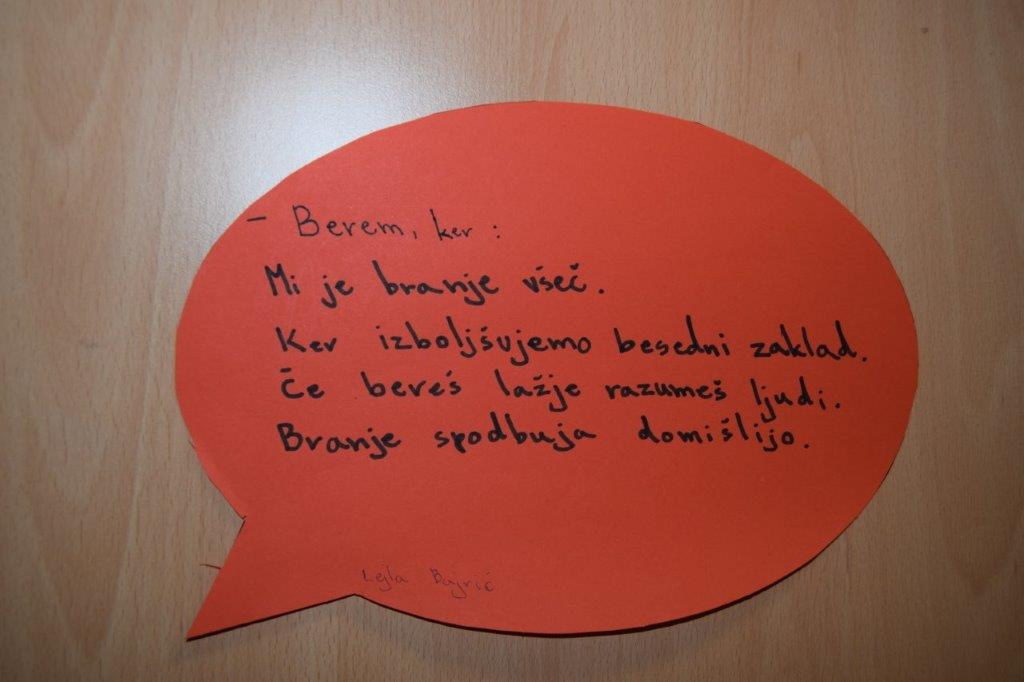 - Berem, ker :
Mi je branje všeč.
Ker izboljšujemo besedni zaklad.
Če bereš lažje razumeš ljudi.
Branje spodbuja domišlijo.
Lejla Bajrić